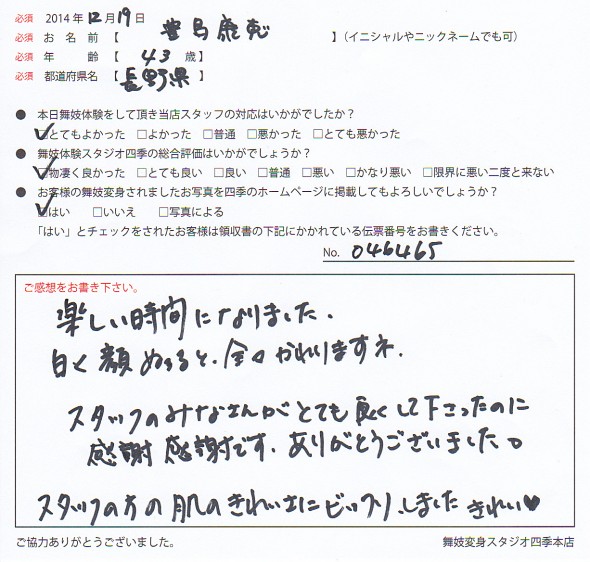 必須 2014年12月19日
必須 お名前【 】(イニシャルやニックネームでも可)
必須 年 齢【 43 歳】
必須 都道府県名【長野県】
● 本日舞妓体験をして頂き当店スタッフの対応はいかがでしたか？
☑とてもよかった □よかった □普通 □悪かった □とても悪かった
● 舞妓体験スタジオ四季の総合評価はいかがでしょうか？
☑物凄く良かった □とても良い □良い □普通 □悪い □かなり悪い □限界に悪い二度と来ない
● お客様の舞妓変身されましたお写真を四季のホームページに掲載してもよろしいでしょうか？
☑はい □いいえ □写真による
「はい」とチェックをされたお客様は領収書の下記にかかれている伝票番号をお書きください。
No. 046465
ご感想をお書き下さい。
楽しい時間になりました.
白く顔ぬると、全々かわりますネ.
スタッフのみなさんがとても良くして下さったのに
感謝感謝です. ありがとうございました。
スタッフの方の肌のきれいさにビックリしました きれい♥
ご協力ありがとうございました。
舞妓変身スタジオ四季本店